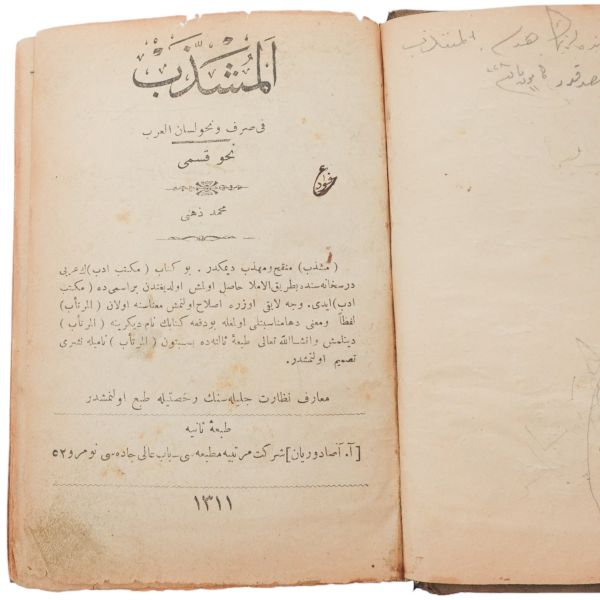 المشذّب
فی صرف ونحو لسان العرب
نحو قسمی
محمد ذهنی
( مشذب ) منقح ومهذب دیمکدر . بو کتاب ( مکتب ادب ) ك عربی
درسخانه سنده بطریق الاملا حاصل اولمش اولدیغندن بر اسمی ده ( مکتب
ادب ) ایدی . وجه لایقی اوزره اصلاح اولنمش معناسنه اولان ( المرتأب )
لفظاً ومعنی دها مناسبتلی اولمغله بودفعه کتابك نام دیکرینه ( المرتأب )
دینلمش وانشاالله تعالی طبعۀ ثالثه ده بسبتون ( المرتأب ) نامیله نشری
تصمیم اولنمشدر .
معارف نظارت جلیله سنك رخصتیله طبع اولنمشدر
طبعۀ ثانیه
[ آ . آصادوریان ] شرکت مرتبیه مطبعه سی – باب عالی جاده سی نومرو ٥٢
١٣١١
المشذب